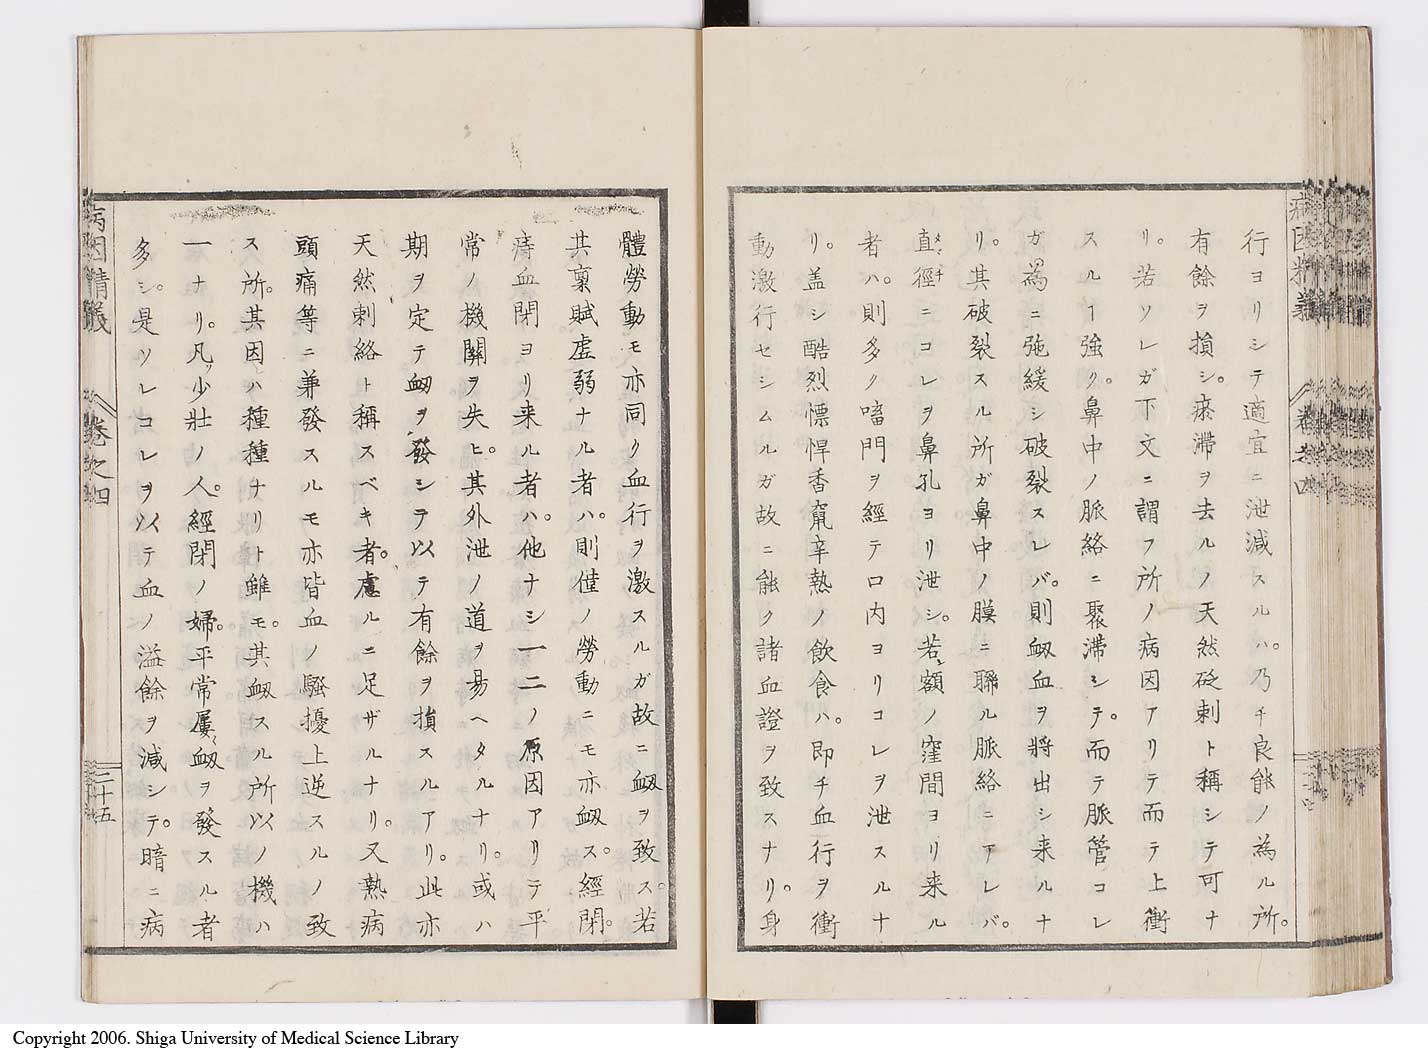 行ヨリシテ適宜ニ泄減スルハ。乃チ良能ノ為ル所。
有餘ヲ損シ。瘀滞ヲ去ルノ天然砭刺ト稱シテ可ナ
リ。若ソレガ下文ニ謂フ所ノ病因アリテ而テ上衝
スルヿ強ク。鼻中ノ脈絡ニ聚滞シテ。而テ脈管コレ
ガ為ニ弛緩シ破裂スレバ。則衂血ヲ將出シ来ルナ
リ。其破裂スル所ガ鼻中ノ膜ニ聯ル脈絡ニアレバ。
直徑ニコレヲ鼻孔ヨリ泄シ。若額ノ窪間ヨリ来ル
者ハ。則多ク嗌門ヲ經テ口内ヨリコレヲ泄スルナ
リ。盖シ酷烈慓悍香竄辛熱ノ飲食ハ。即チ血行ヲ衝
動激行セシムルガ故ニ能ク諸血證ヲ致スナリ。身
體勞動モ亦同ク血行ヲ激スルガ故ニ衂ヲ致ス。若
其稟賦虚弱ナル者ハ。則僅ノ勞動ニモ亦衂ス。經閉。
痔血閉ヨリ来ル者ハ。他ナシ一二ノ原因アリテ平
常ノ機關ヲ失ヒ。其外泄ノ道ヲ易ヘタルナリ。或ハ
期ヲ定テ衂ヲ發シテ以テ有餘ヲ損スルアリ。此亦
天然刺絡ト稱スベキ者。慮ルニ足ザルナリ。又熱病
頭痛等ニ兼發スルモ亦皆血ノ騷擾上逆スルノ致
ス所。其因ハ種種ナリト雖モ。其衂スル所以ノ機ハ
一ナリ。凡少壯ノ人。經閉ノ婦。平常屢衂ヲ發スル者
多シ。是ソレコレヲ以テ血ノ溢餘ヲ減シテ。暗ニ病
病因精義
卷之四
二十五
Copyright 2006. Shiga University of Medical Science Library